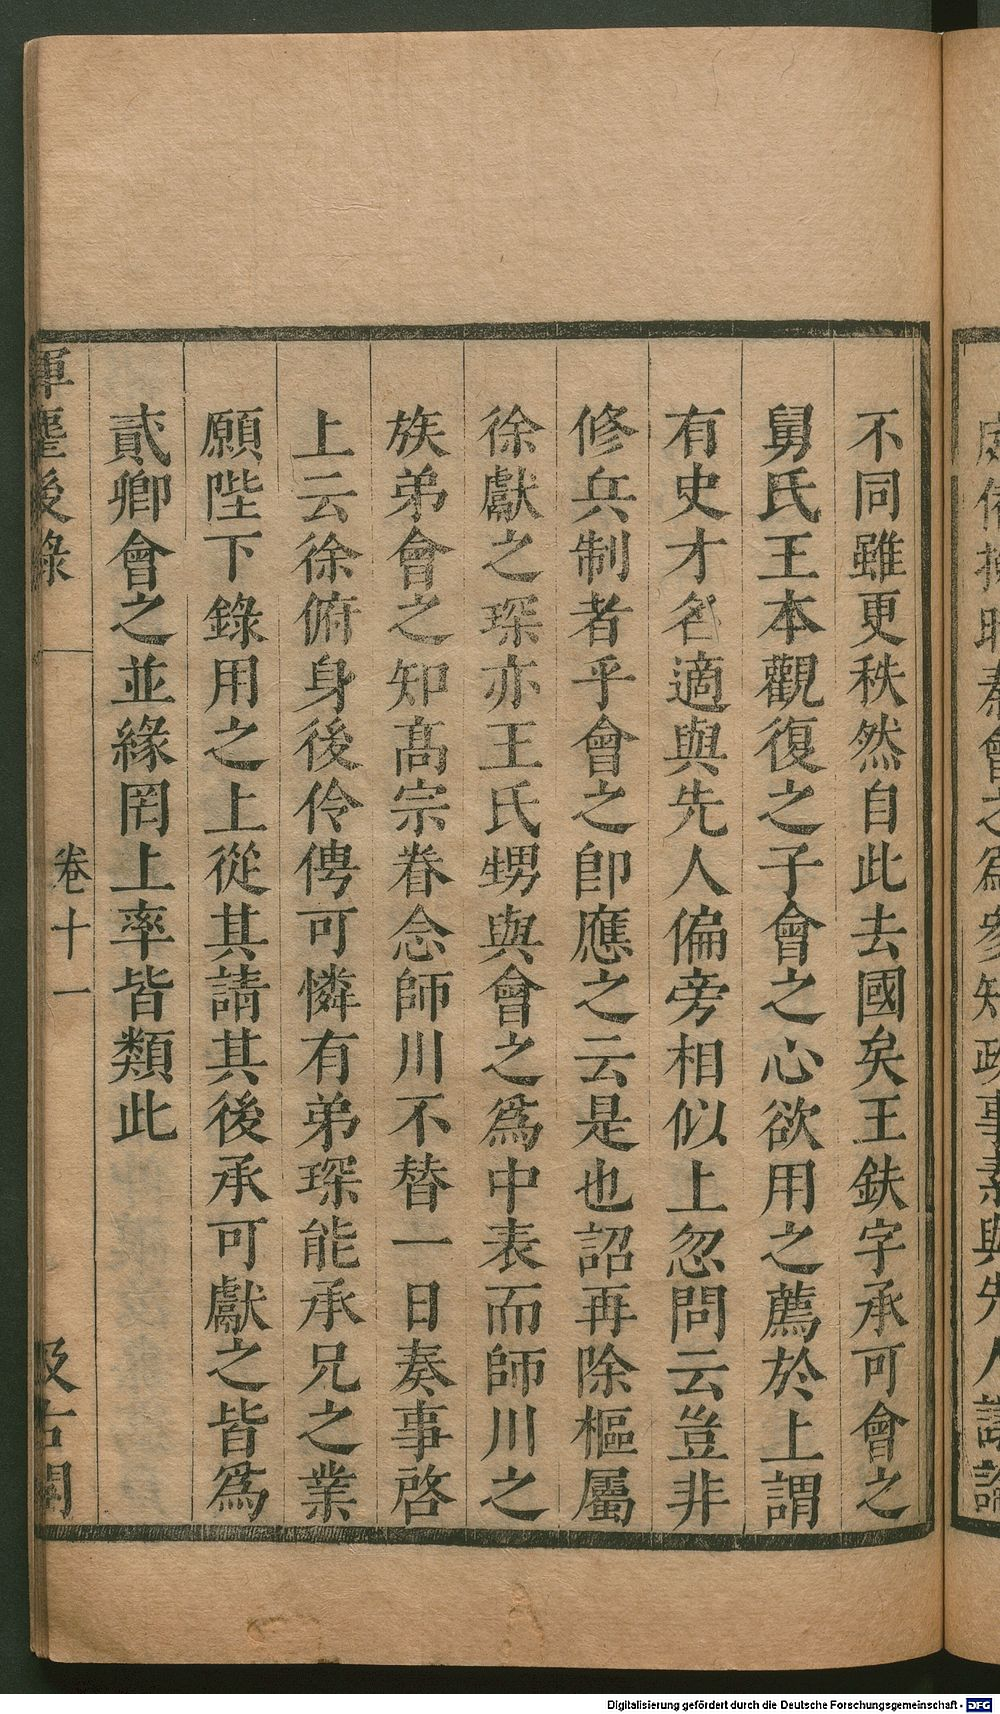 不同雖更秩然自此去國矣王鈇字承可會之
舅氏王本觀復之子會之心欲用之薦於上謂
有史才名適與先人偏旁相似上忽問云豈非
修兵制者乎會之卽應之云是也詔再除樞屬
徐獻之琛亦王氏甥與會之爲中表而師川之
族弟會之知髙宗眷念師川不替一日奏事啓
上云徐俯身後伶俜可憐有弟琛能承兄之業
願陛下錄用之上從其請其後承可獻之皆爲
貳卿會之並緣罔上率皆類此
揮麈後錄
卷十一
汲古閣
Digitalisierung gefördert durch die Deutsche Forschungsgemeinschaft - DFG